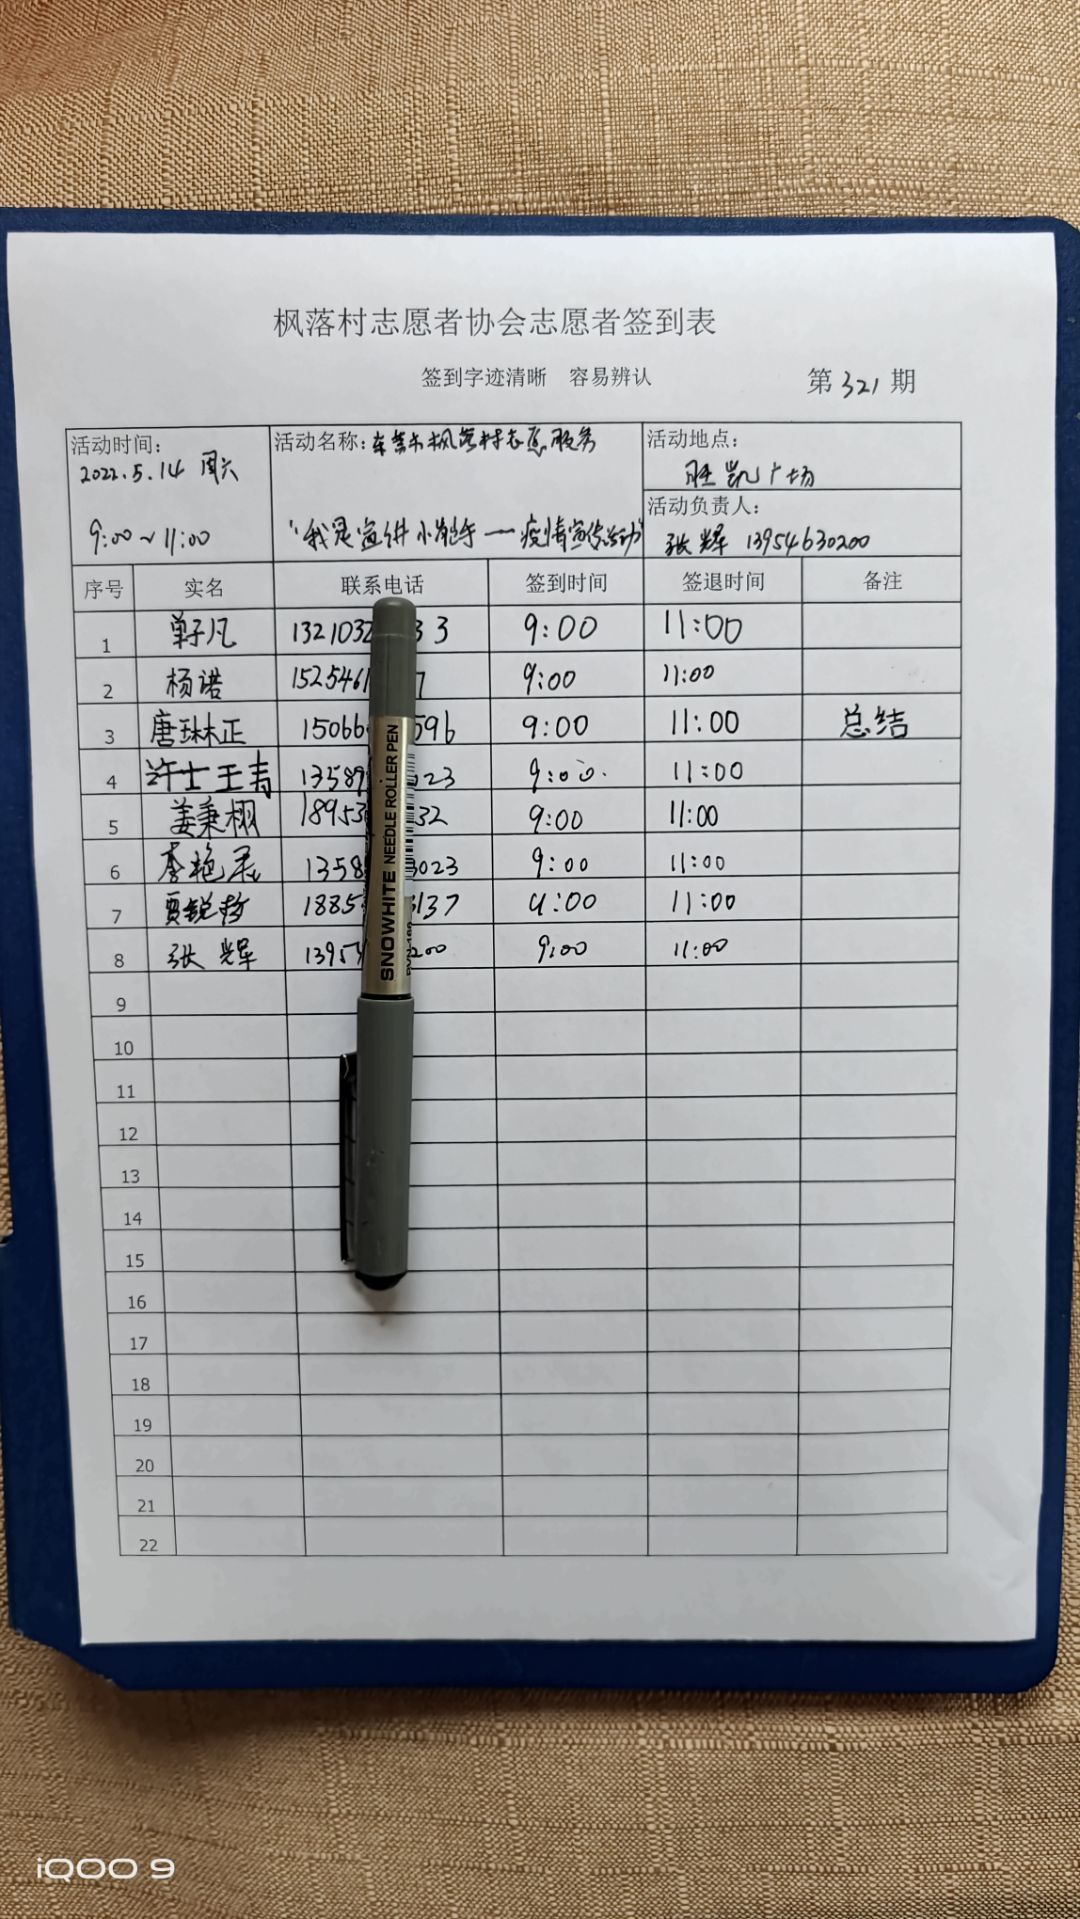 枫落村志愿者协会志愿者签到表
签到字迹清晰 容易辨认 第321期
活动时间: 2022.5.14 周六 9:00~11:00
活动名称:东营市枫落村志愿服务
"我是宣讲小能手——疫情宣传活动"
活动地点: 胜凯广场
活动负责人: 张辉 13954630200
序号 实名 联系电话 签到时间 签退时间 备注
1 单子凡 1321032 33 9:00 11:00
2 杨诺 1525461 7 9:00 11:00
3 唐琳正 15066 596 9:00 11:00 总结
4 许士王青 13589 23 9:00 11:00
5 姜秉栩 18953 32 9:00 11:00
6 李艳 1358 3023 9:00 11:00
7 贾锐 1885 137 9:00 11:00
8 张辉 1395 200 9:00 11:00
9
10
11
12
13
14
15
16
17
18
19
20
21
22
SNOWHITE NEEDLE ROLLER PEN
iQOO 9